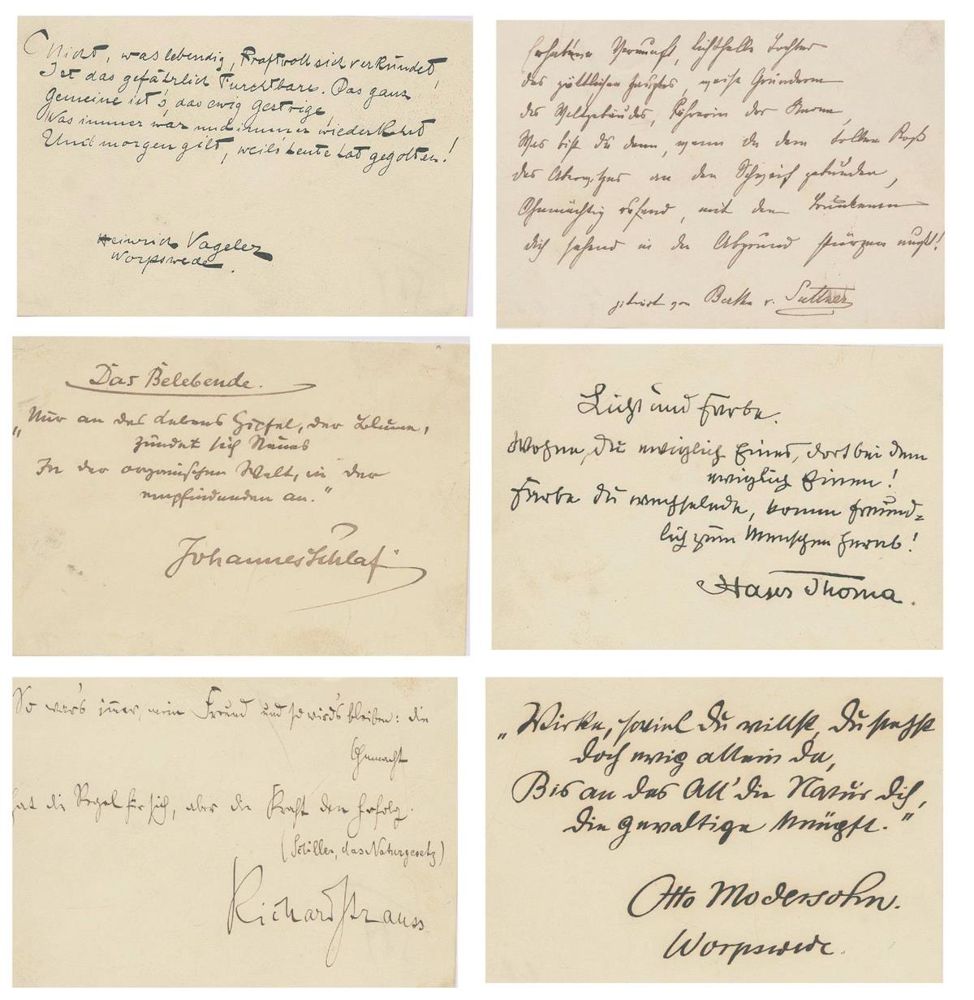 Nicht, was lebendig, kraftvoll sich verkündet,
Ist das gefährlich Furchtbare. Das ganz
Gemeine ist's das ewig Gestrige
Was immer war und immer wiederkehrt
Und morgen gilt, weils heute hat gegolten!
Heinrich Vogeler
Worpswede.
Erhabene Vernunft, lichthelle Tochter
des göttlichen Hauptes, weise Gründerin
des Weltgebäudes, Führerin der Sterne,
Wer bist du denn, wenn du dem tollen Roß
des Aberwitzes an den Schweif gebunden,
Ohnmächtig rufend, mit dem Trunkenen
dich sehend in den Abgrund stürzen mußt!
zitirt von Bertha v. Suttner
Das Belebende.
„Nur an des Lebens Gipfel, der Blume,
zündet sich Neues
In der organischen Welt, in der
empfindenden an."
Johannes Schlaf
Licht und Farbe.
Wohne, du ewiglich Eines, dort bei dem
ewiglich Einen!
Farbe du wechselnde, komm freund=
lich zum Menschen herab!
Hans Thoma.
So war's immer, mein Freund und so wird's bleiben: die
Ohnmacht
hat die Regel für sich, aber die Kraft den Erfolg.
(Schiller, das Naturgesetz)
Richard Strauss
„Wirke, soviel Du willst, Du stehst
doch ewig allein da,
Bis an das All die Natur Dich,
die gewaltige knüpft."
Otto Modersohn.
Worpswede.